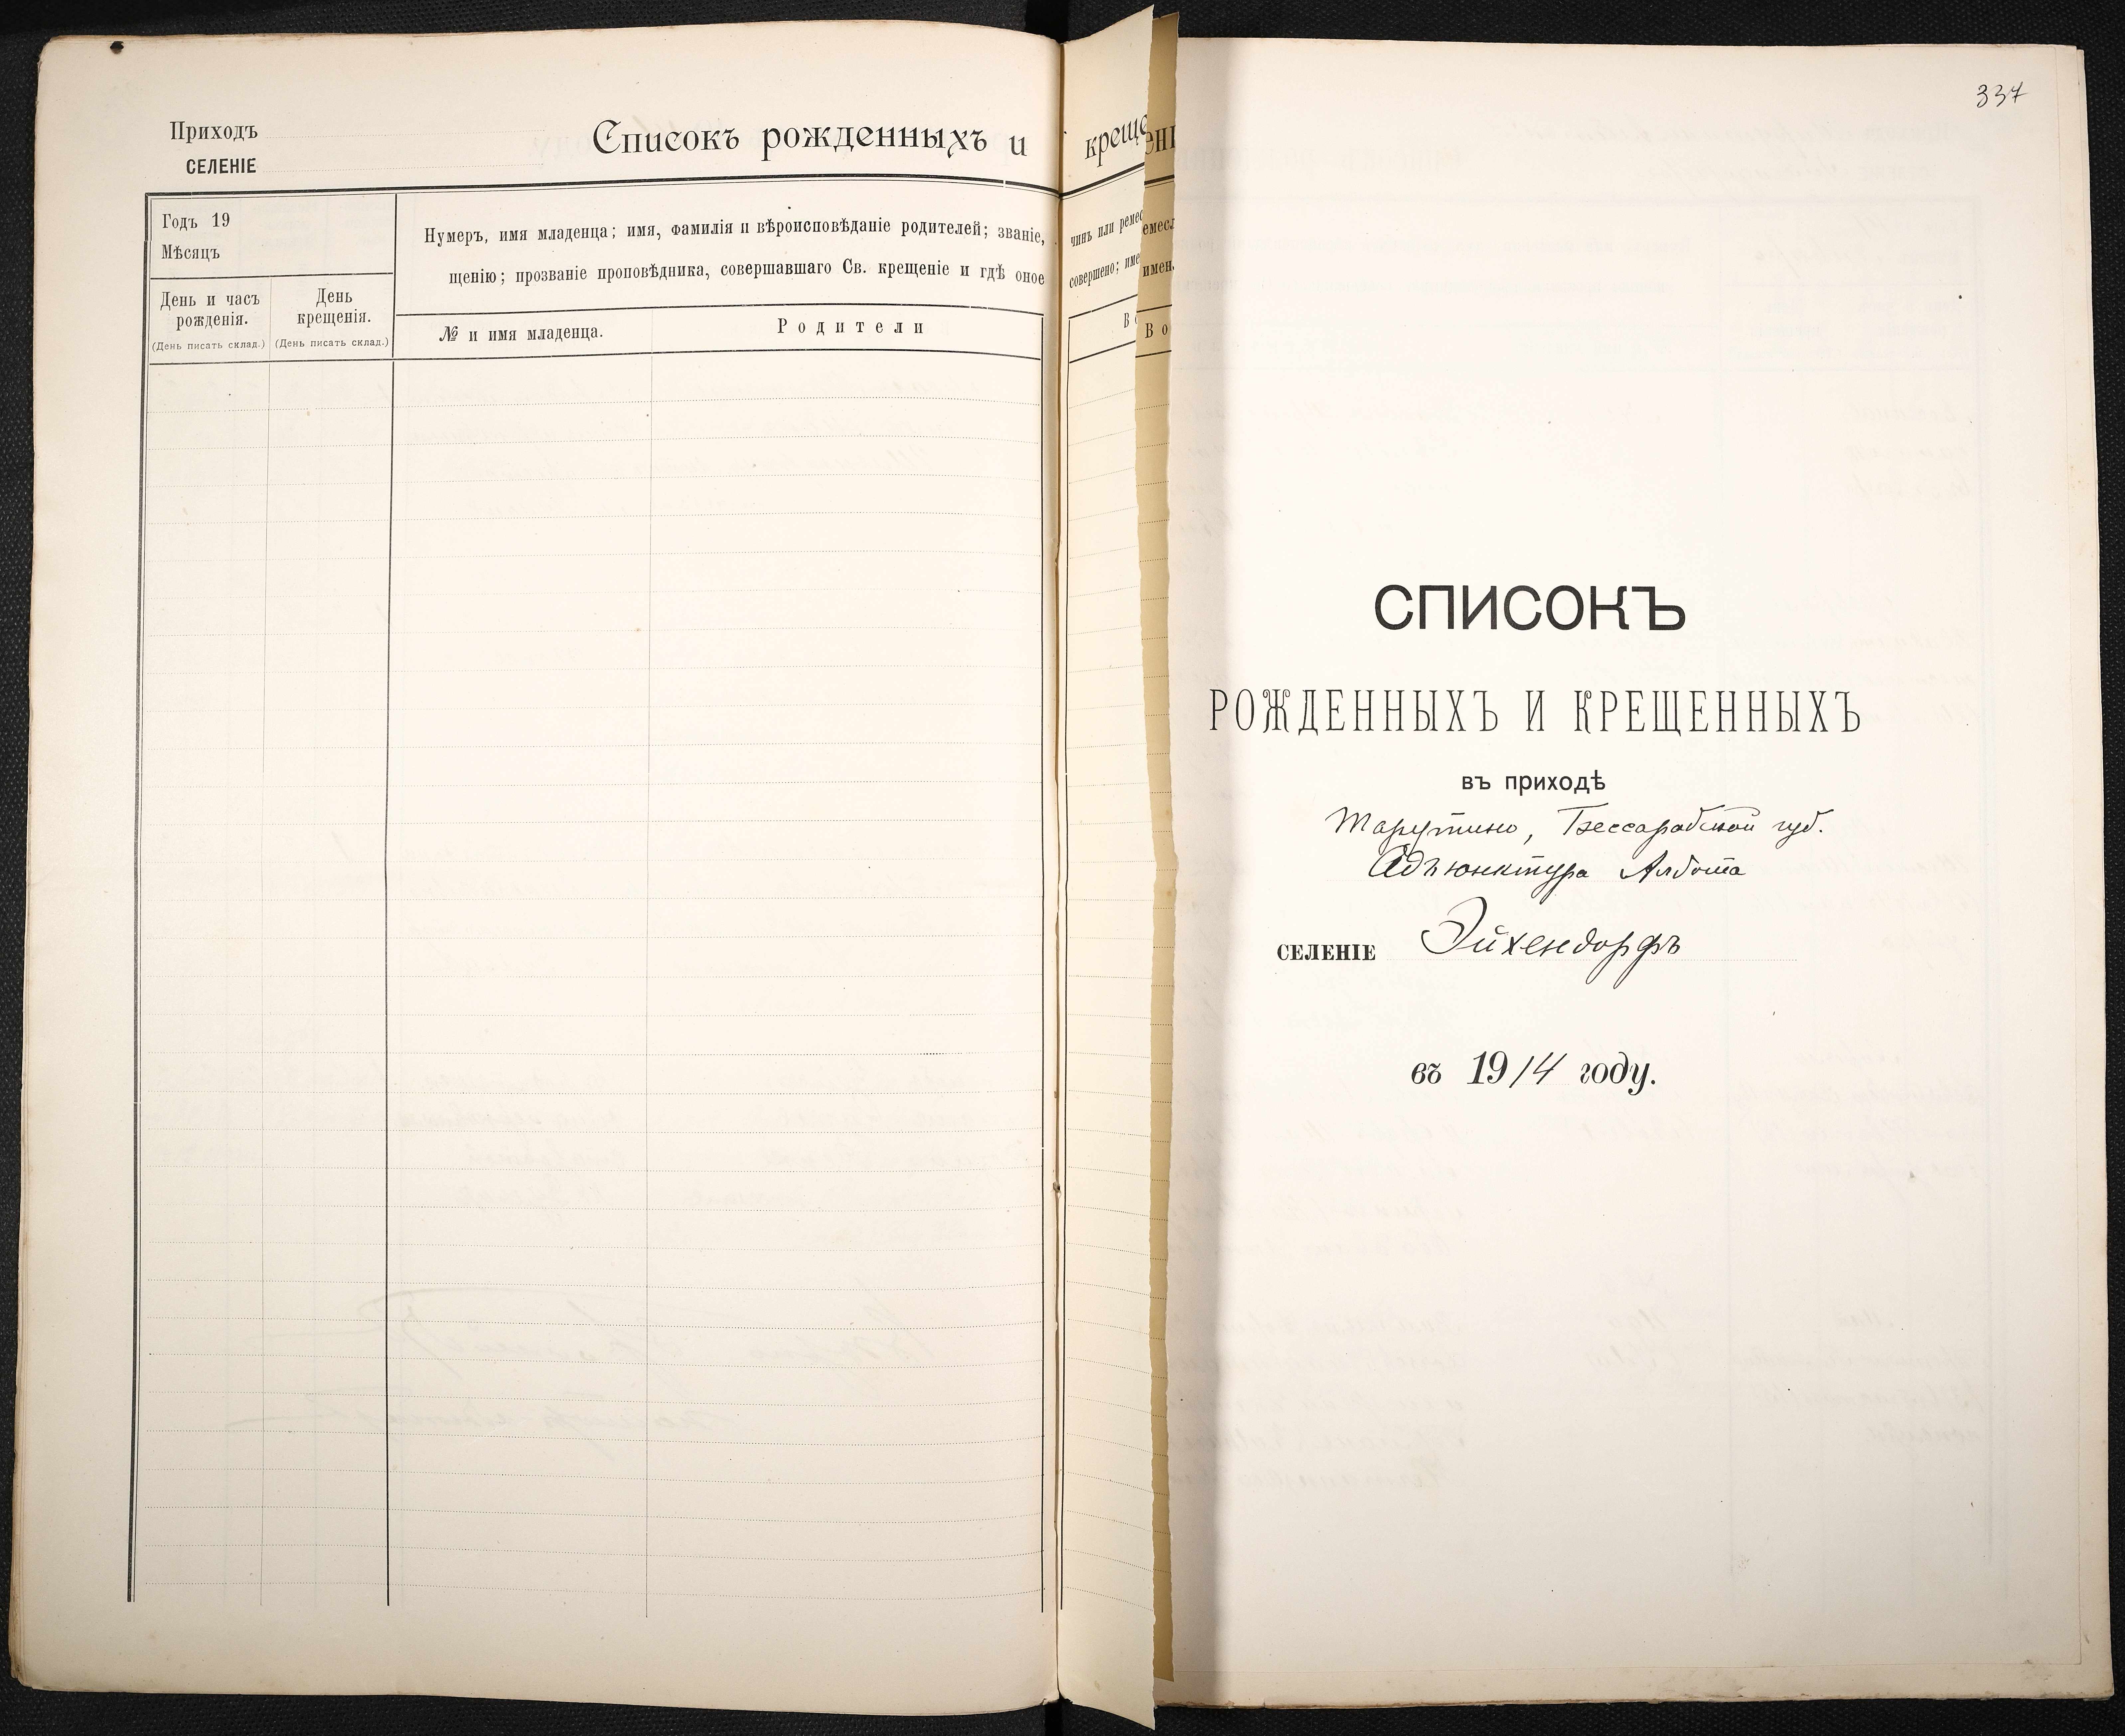 Приходъ
СЕЛЕНІЕ
Списокъ рожденныхъ и
Годъ 19
Мѣсяцъ
Нумеръ, имя младенца; имя, фамилія и вѣроисповѣданіе родителей; званіе,
щенію; прозваніе проповѣдника, совершавшаго Св. крещеніе и гдѣ оное
День и часъ рожденія.
(День писать склад.)
День крещенія.
(День писать склад.)
№ и имя младенца.
Родители
креще
чинъ или ремес
совершено; име
емесл
имен
Во
337
СПИСОКЪ
РОЖДЕННЫХЪ И КРЕЩЕННЫХЪ
въ приходѣ
Тарутино, Бессарабской губ.
Адъюнктура Албота
СЕЛЕНІЕ Эйхендорфъ
въ 1914 году.